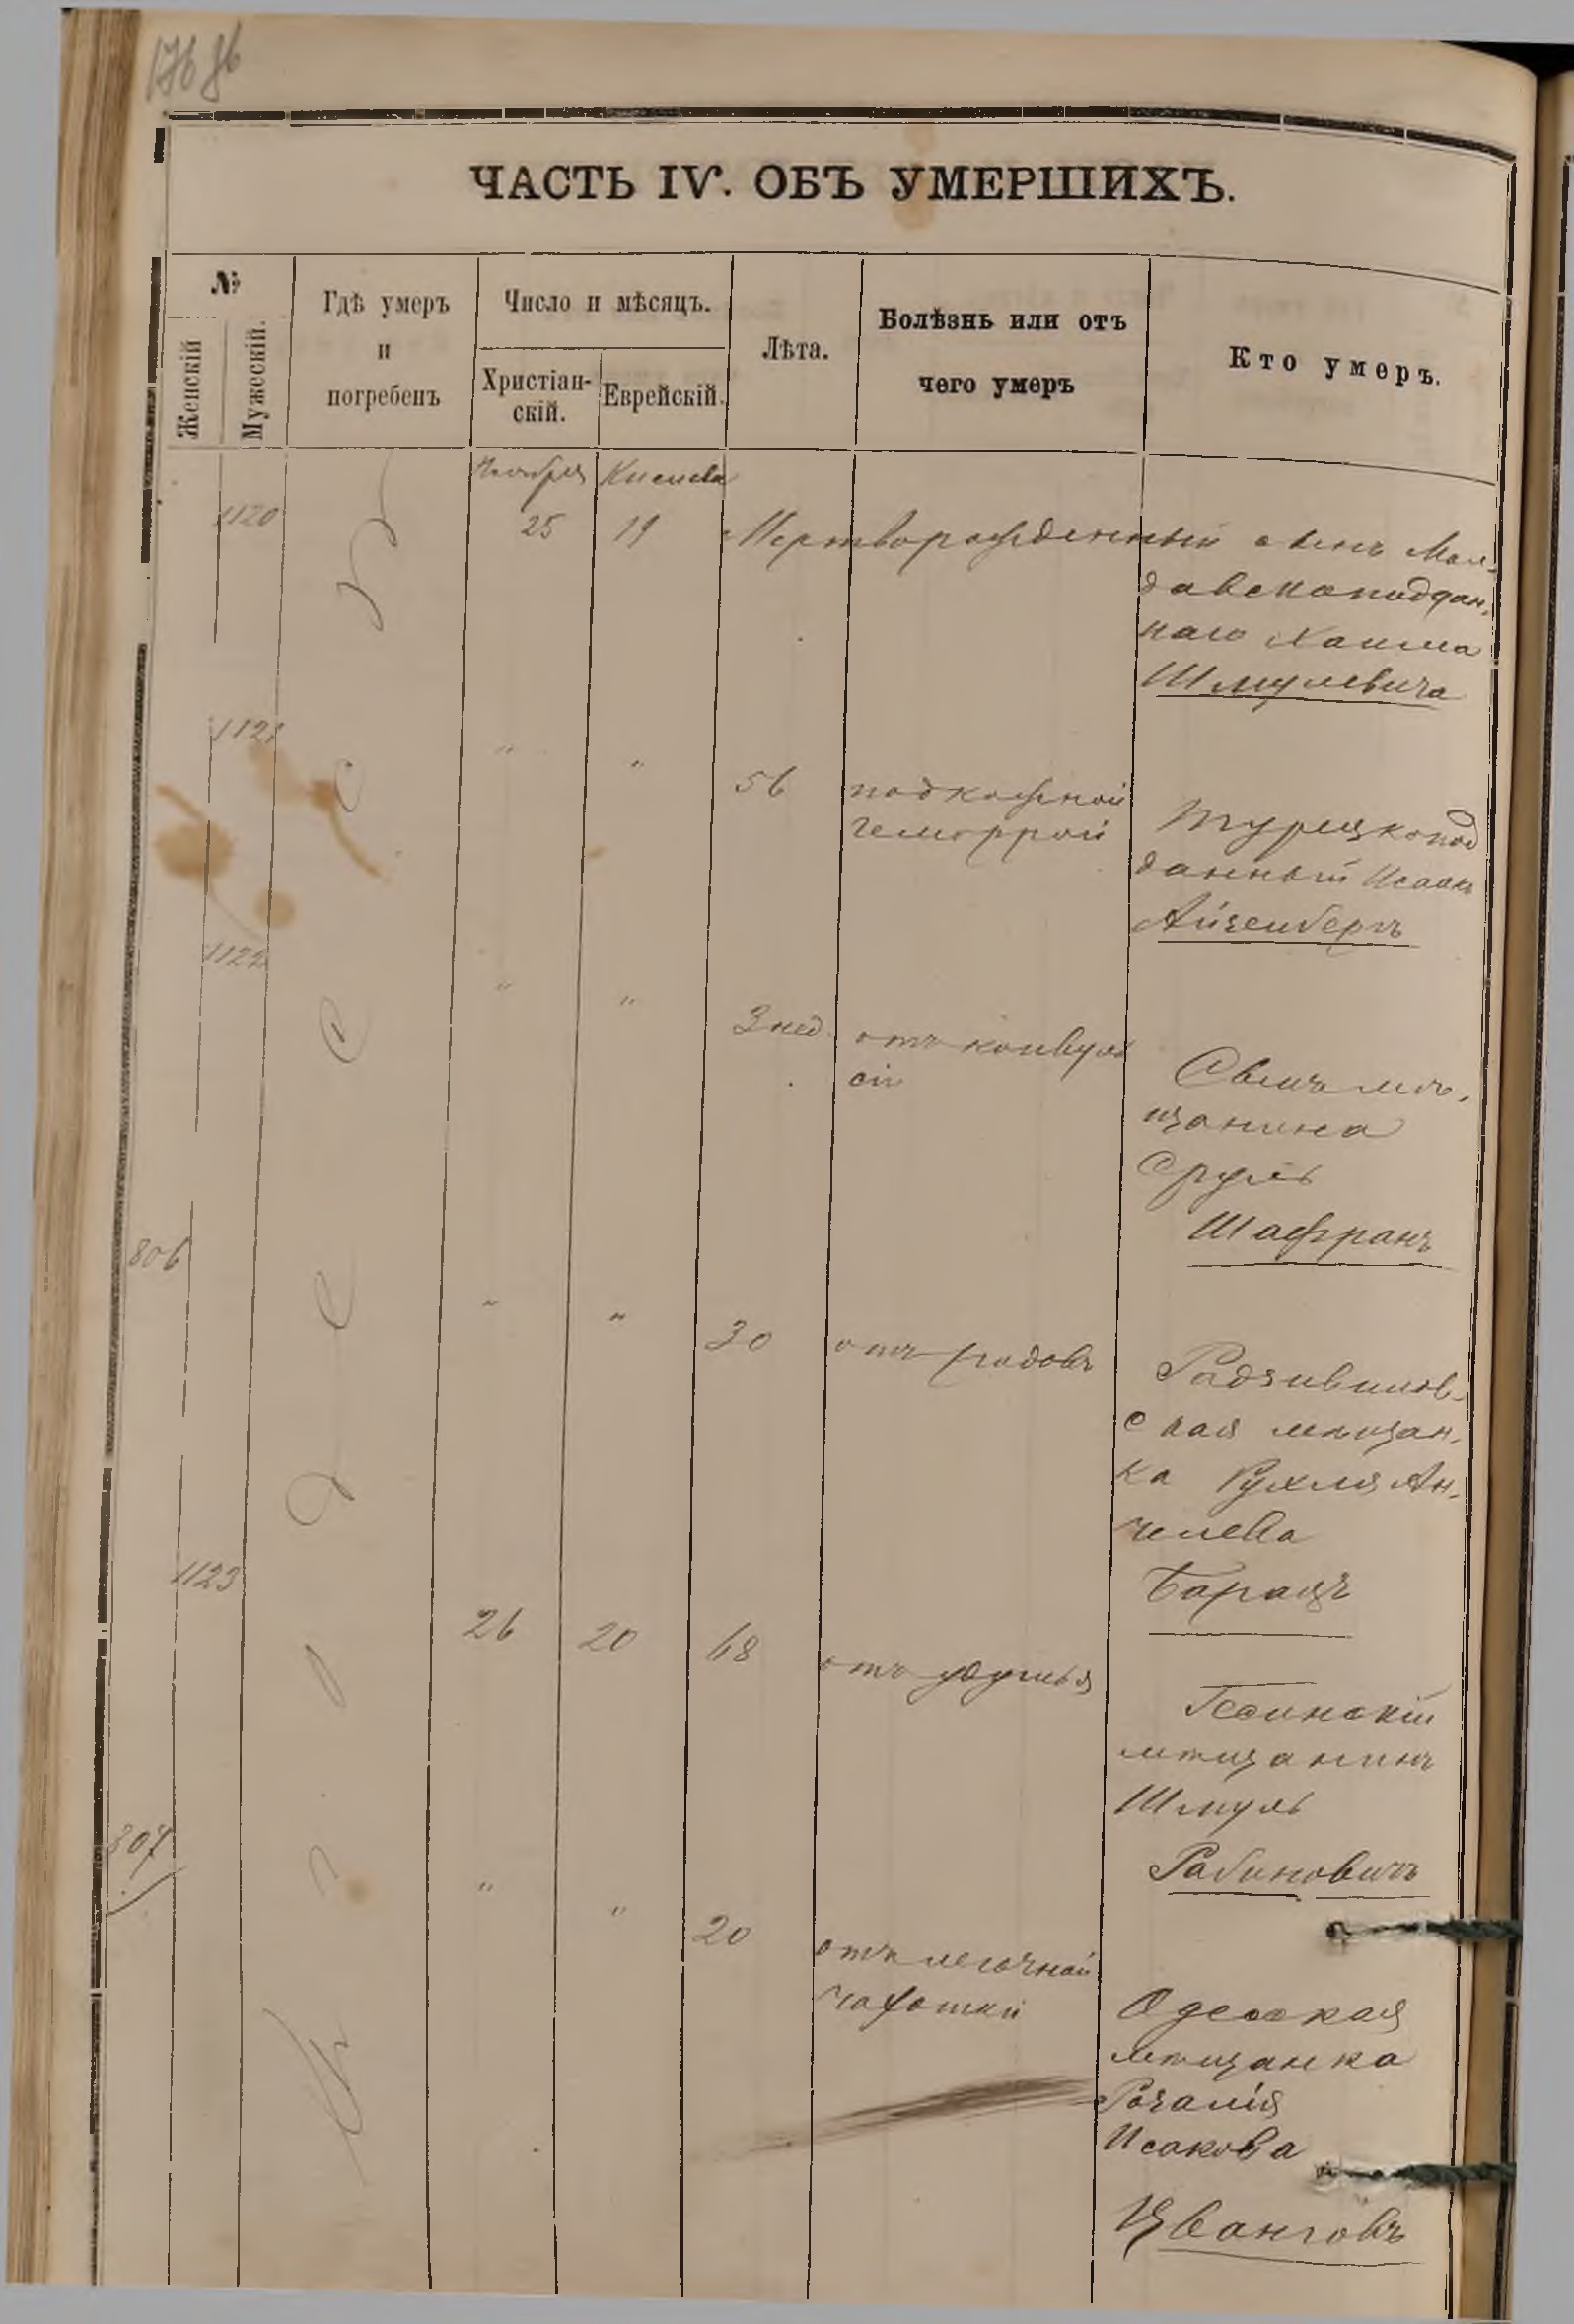 ЧАСТЬ IV. ОБЪ УМЕРШИХЪ.
№
Женскій
Мужескій.
Гдѣ умеръ
и
погребенъ
Число и мѣсяцъ.
Христіан-
скій.
Еврейскій.
Лѣта.
Болѣзнь или отъ
чего умеръ
Кто умеръ.
Ноября Кислева
1120 25 19 Мертворожденный сынъ Мол-
давскоподдан-
наго Хаима
Шмулевича
1121 " " 56 подкожной
геморрой
Турецкопод
данный Исаакъ
Айзенбергъ
1122 " " 3 нед. отъ конвуль
сій
Сынъ мѣ-
щанина
Сруль
Шафранъ
806 " " 30 отъ родовъ
Радзивилов-
ская мѣщан-
ка Рухля Ан-
челева
Барацъ
1123 26 20 68 отъ удушья
мѣщанинъ
Шмуль
Рабиновичъ
807 " " 20 отъ легочной
чахотки
Одесская
мѣщанка
Розалія
Исакова
Цванговъ